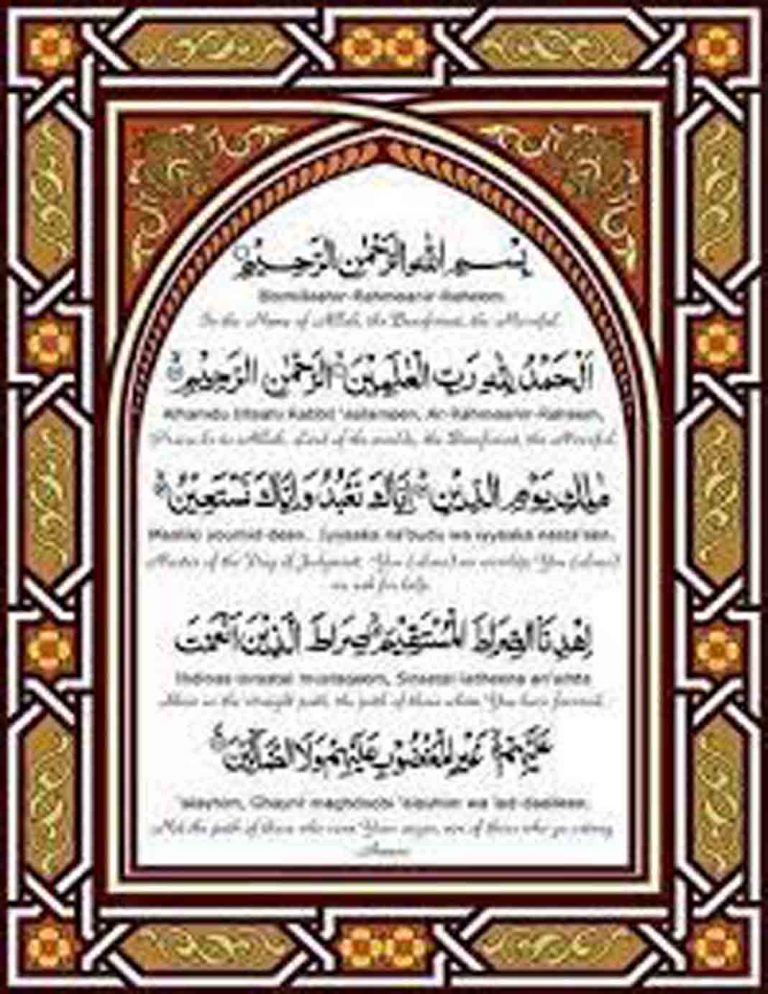 بِسْمِ اللهِ الرَّحْمٰنِ الرَّحِيْمِ
Bismillaahir-Rahmaanir-Raheem.
In the Name of Allah, the Beneficent, the Merciful.
اَلْحَمْدُ لِلّٰهِ رَبِّ الْعٰلَمِيْنَ الرَّحْمٰنِ الرَّحِيْمِ
Alhamdu lillaahi Rabbil 'aalameen, Ar-Rahmaanir-Raheem,
Praise be to Allah, Lord of the worlds, the Beneficent, the Merciful.
مٰلِكِ يَوْمِ الدِّيْنِ اِيَّاكَ نَعْبُدُ وَاِيَّاكَ نَسْتَعِيْنُ
Maaliki youmid-deen. Iyyaaka na'budu wa iyyaaka nasta'een,
Master of the Day of Judgment. You (alone) we worship You (alone)
we ask for help.
اِهْدِنَا الصِّرَاطَ الْمُسْتَقِيْمَ صِرَاطَ الَّذِيْنَ اَنْعَمْتَ
Ihdinas-siraatal mustaqeem, Siraatal-latheena an'amta
Show us the straight path, the path of those whom You have favored.
عَلَيْهِمْ غَيْرِ الْمَغْضُوْبِ عَلَيْهِمْ وَلَا الضَّآلِّيْنَ
'alayhim, Ghayril maghdoobi 'alayhim wa lad-daalleen.
Not the path of those who earn Your anger, nor of those who go astray.
Ameen